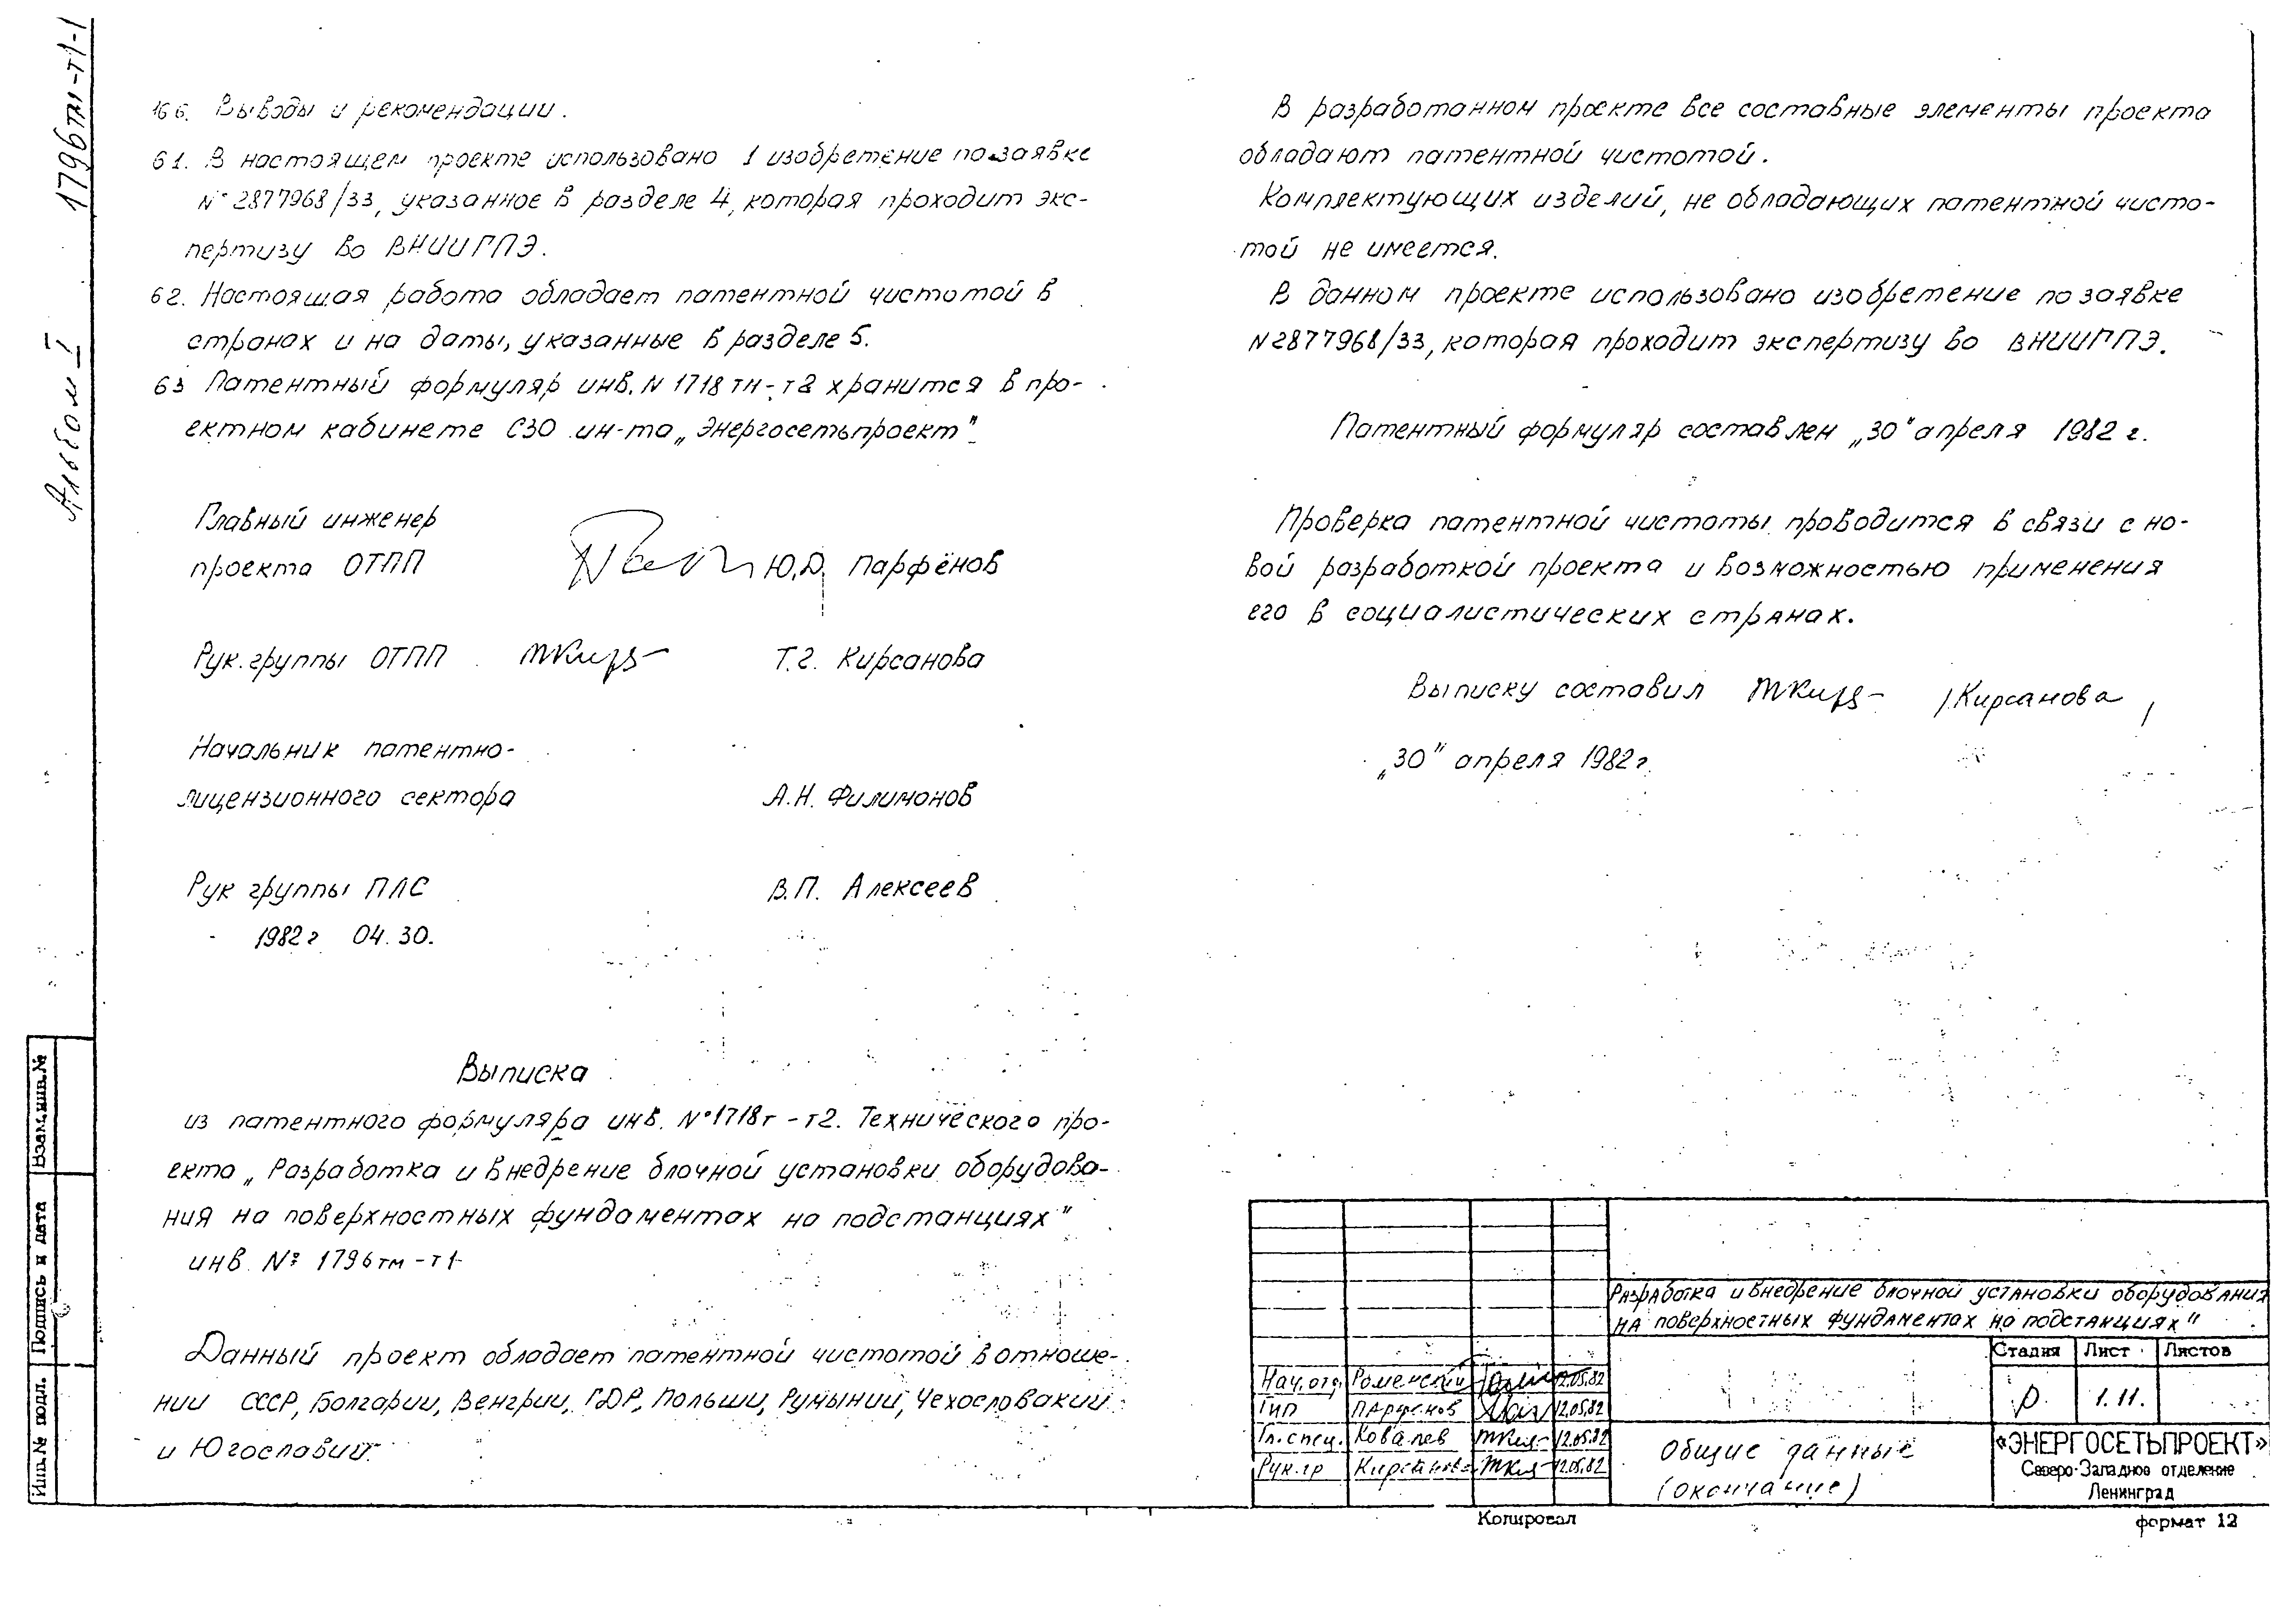 1796тм-т1-1
Альбом I
16 6. Выводы и рекомендации.
61. В настоящем проекте использовано 1 изобретение по заявке
№ 2877968/33, указанное в разделе 4, которая проходит экс-
пертизу во ВНИИГПЭ.
62. Настоящая работа обладает патентной чистотой в
странах и на даты, указанные в разделе 5.
63 Патентный формуляр инв. N 1718 тм-т2 хранится в про-
ектном кабинете СЗО ин-та „Энергосетьпроект"
Главный инженер
проекта ОТПП Ю.Д. Парфёнов
Рук. группы ОТПП Т.Г. Кирсанова
Начальник патентно-
лицензионного сектора А.Н. Филимонов
Рук группы ПЛС В.П. Алексеев
1982 г 04. 30.
Выписка
из патентного формуляра инв. №1718т-т2. Технического про-
екта „Разработка и внедрение блочной установки оборудова-
ния на поверхностных фундаментах на подстанциях"
инв. № 1796тм-т1
Данный проект обладает патентной чистотой в отноше-
нии СССР, Болгарии, Венгрии, ГДР, Польши, Румынии, Чехословакии
и Югославии.
В разработанном проекте все составные элементы проекта
обладают патентной чистотой.
Комплектующих изделий, не обладающих патентной чисто-
той не имеется.
В данном проекте использовано изобретение по заявке
N2877968/33, которая проходит экспертизу во ВНИИГПЭ.
Патентный формуляр составлен „30" апреля 1982 г.
Проверка патентной чистоты проводится в связи с но-
вой разработкой проекта и возможностью применения
его в социалистических странах.
Выписку составил /Кирсанова/
„30" апреля 1982г.
Разработка и внедрение блочной установки оборудования
на поверхностных фундаментах на подстанциях"
Стадия Лист Листов
Р 1.11.
Нач. отд. Роменский 12.05.82
ГИП Парфенов 12.05.82
Гл. спец. Ковалев 12.05.82
Рук. гр Кирсанова 12.05.82
Общие данные
(окончание)
«ЭНЕРГОСЕТЬПРОЕКТ»
Северо-Западное отделение
Ленинград
Копировал
формат 12
Взам.инв.№
Подпись и дата
Инв.№ подл.